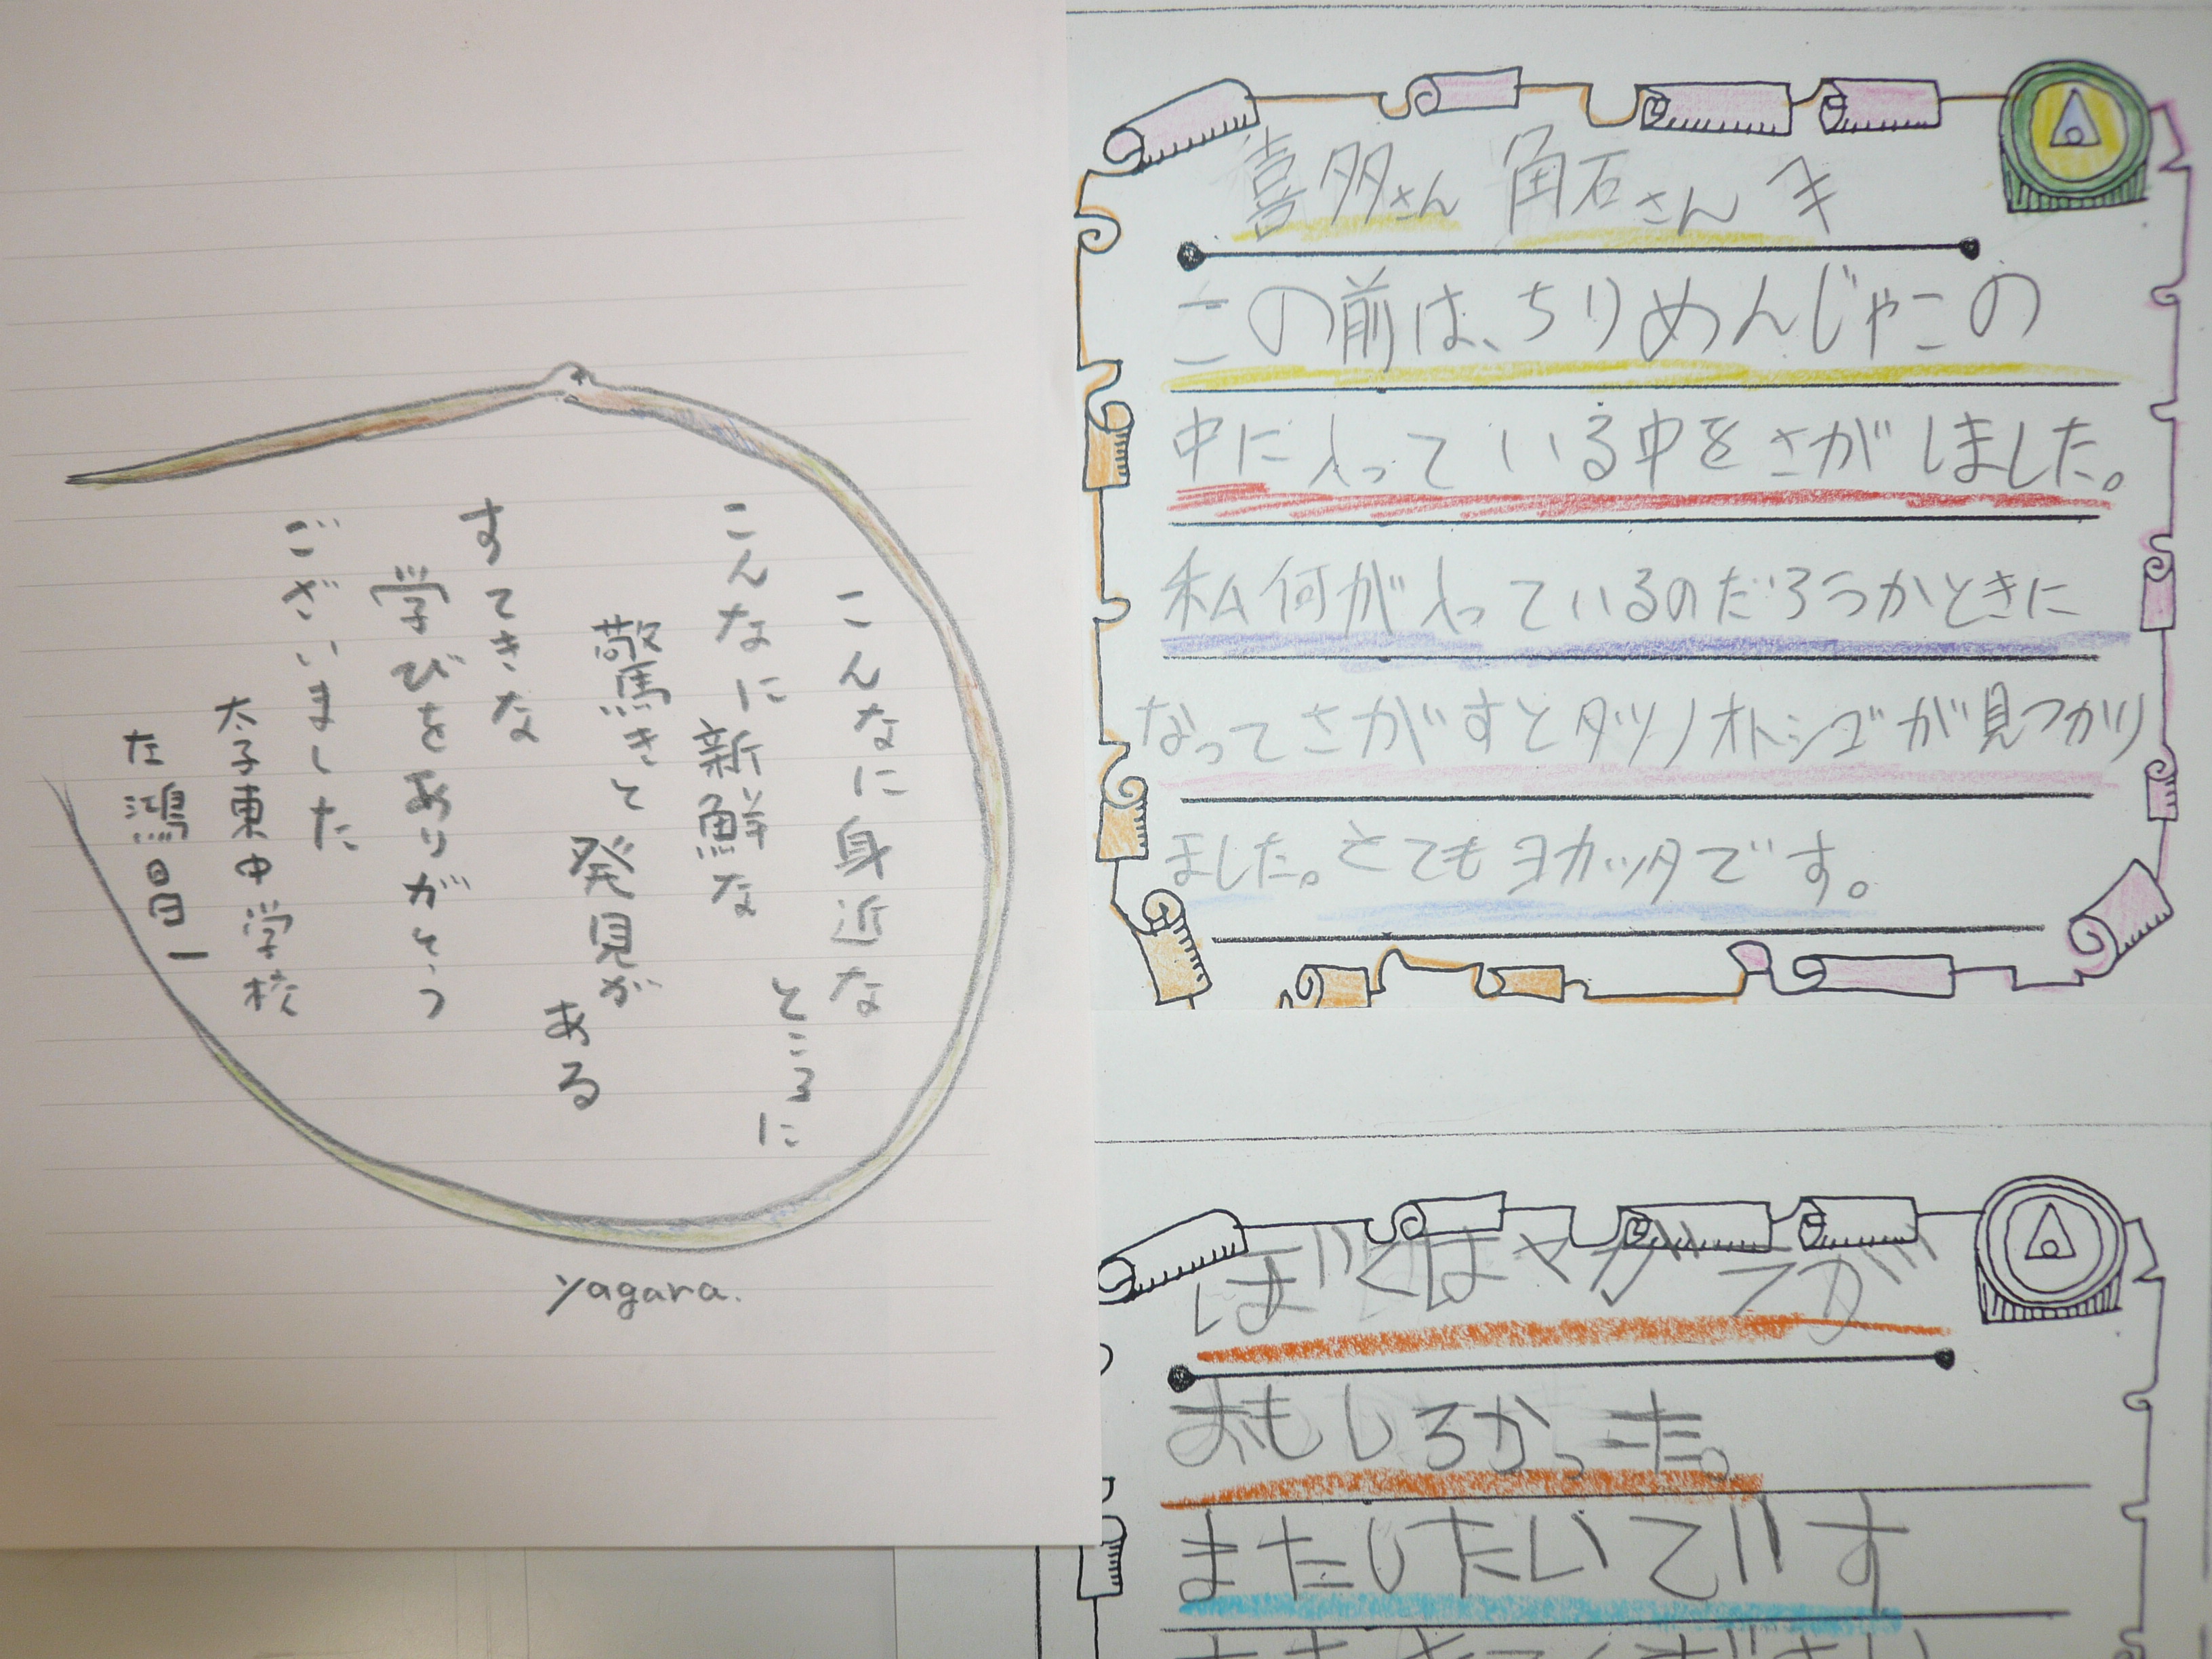 こんなに身近な
ところに
こんなに新鮮な
驚きと発見が
ある
すてきな
学びをありがとう
ございました
太子東中学校
左鴻昌一
yagara.
喜多さん 角石さん へ
この前は、ちりめんじゃこの
中に入っている中をさがしました。
私何が入っているのだろうかときに
なってさがすとタツノオトシゴが見つかり
ました。とてもヨカッタです。
ぼくはヤガラが
おもしろかった。
またしたいです